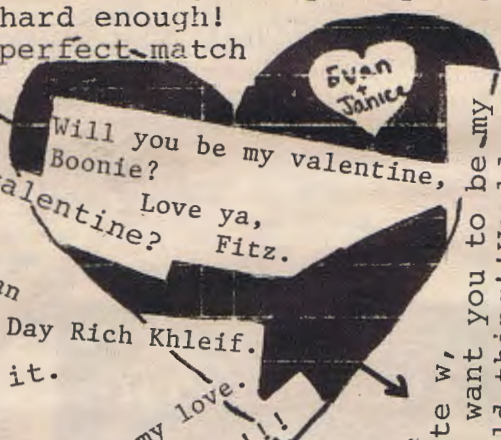 hard enough!
perfect match
Evan
+
Janice
Will you be my valentine,
Boonie?
Love ya,
Fitz.
valentine?
Day Rich Khleif.
it.
my love.
!!!
want you to be my